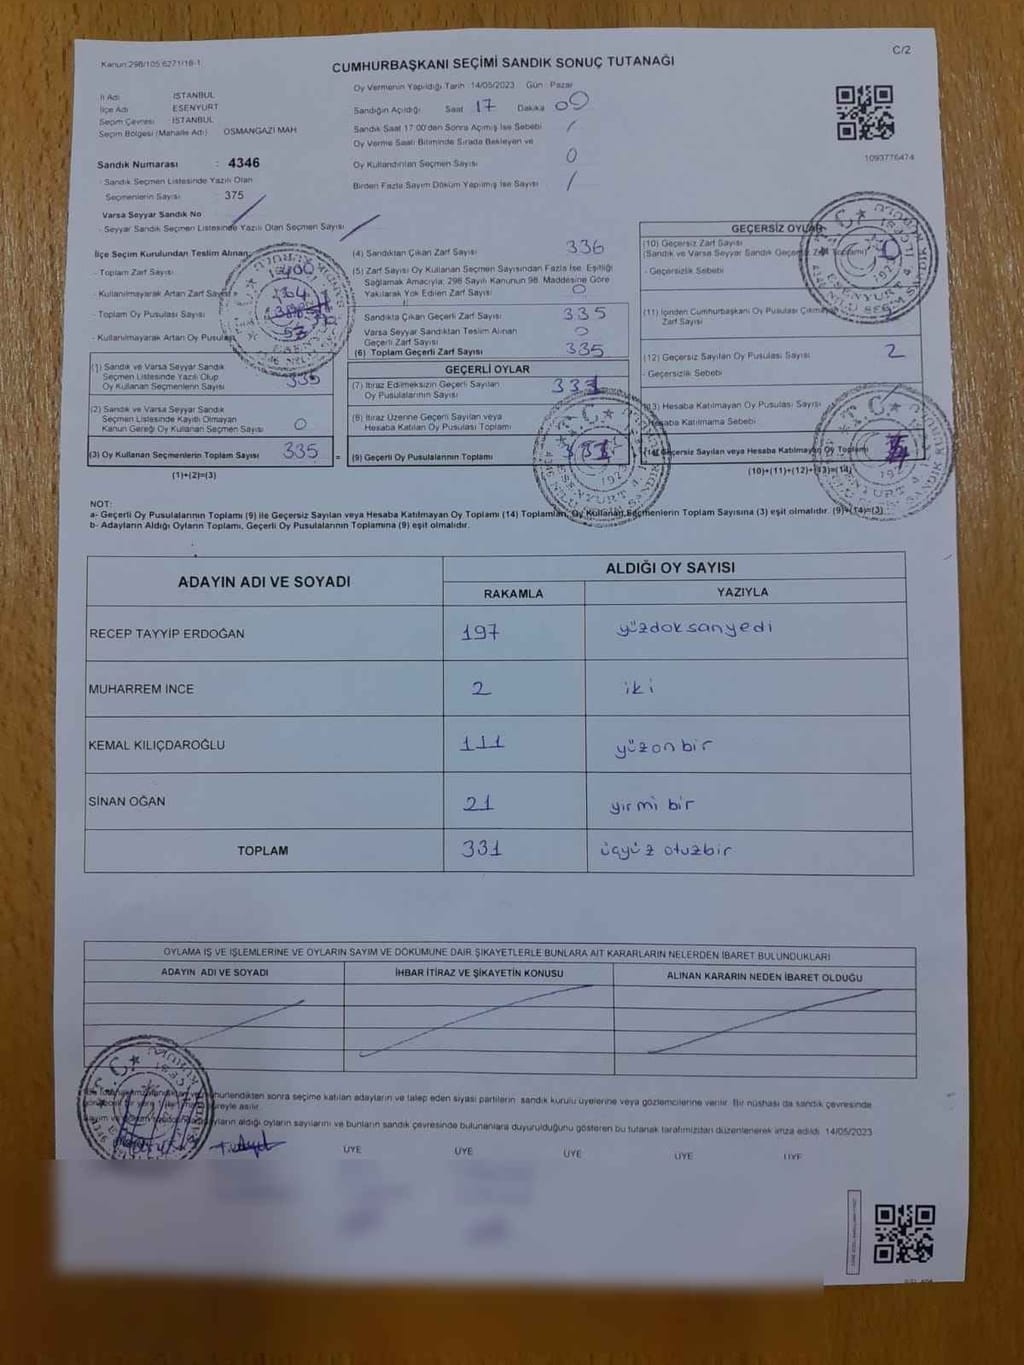 Kanun:298/105 6271/18-1
C/2
CUMHURBAŞKANI SEÇİMİ SANDIK SONUÇ TUTANAĞI
İl Adı İSTANBUL
İlçe Adı ESENYURT
Seçim Çevresi İSTANBUL
Seçim Bölgesi (Mahalle Adı) OSMANGAZİ MAH
Sandık Numarası : 4346
- Sandık Seçmen Listesinde Yazılı Olan
Seçmenlerin Sayısı : 375
Varsa Seyyar Sandık No
- Seyyar Sandık Seçmen Listesinde Yazılı Olan Seçmen Sayısı
Oy Vermenin Yapıldığı Tarih :14/05/2023 Gün : Pazar
Sandığın Açıldığı Saat 17 Dakika 09
Sandık Saat 17:00'den Sonra Açımış İse Sebebi /
Oy Verme Saati Bitiminde Sırada Bekleyen ve
Oy Kullandırılan Seçmen Sayısı 0
Birden Fazla Sayım Döküm Yapılmış İse Sayısı /
1093776474
İlçe Seçim Kurulundan Teslim Alınan;
- Toplam Zarf Sayısı 400
- Kullanılmayarak Artan Zarf Sayısı 64
- Toplam Oy Pusulası Sayısı
- Kullanılmayarak Artan Oy Pusulası
(1) Sandık ve Varsa Seyyar Sandık
Seçmen Listesinde Yazılı Olup
Oy Kullanan Seçmenlerin Sayısı 335
(2) Sandık ve Varsa Seyyar Sandık
Seçmen Listesinde Kayıtlı Olmayan
Kanun Gereği Oy Kullanan Seçmen Sayısı 0
(3) Oy Kullanan Seçmenlerin Toplam Sayısı 335 =
(1)+(2)=(3)
(4) Sandıktan Çıkan Zarf Sayısı 336
(5) Zarf Sayısı Oy Kullanan Seçmen Sayısından Fazla İse, Eşitliği
Sağlamak Amacıyla; 298 Sayılı Kanunun 98. Maddesine Göre
Yakılarak Yok Edilen Zarf Sayısı 0
Sandıkta Çıkan Geçerli Zarf Sayısı 335
Varsa Seyyar Sandıktan Teslim Alınan
Geçerli Zarf Sayısı 0
(6) Toplam Geçerli Zarf Sayısı 335
GEÇERLİ OYLAR
(7) İtiraz Edilmeksizin Geçerli Sayılan
Oy Pusulalarının Sayısı 331
(8) İtiraz Üzerine Geçerli Sayılan veya
Hesaba Katılan Oy Pusulası Toplamı
(9) Geçerli Oy Pusulalarının Toplamı 331
GEÇERSİZ OYLAR
(10) Geçersiz Zarf Sayısı
(Sandık ve Varsa Seyyar Sandık Geçersiz Zarf Toplamı) 0
- Geçersizlik Sebebi
(11) İçinden Cumhurbaşkanı Oy Pusulası Çıkmayan
Zarf Sayısı
(12) Geçersiz Sayılan Oy Pusulası Sayısı 2
- Geçersizlik Sebebi
(13) Hesaba Katılmayan Oy Pusulası Sayısı
Hesaba Katılmama Sebebi
(14) Geçersiz Sayılan veya Hesaba Katılmayan Oy Toplamı
(10)+(11)+(12)+(13)=(14)
NOT:
a- Geçerli Oy Pusulalarının Toplamı (9) ile Geçersiz Sayılan veya Hesaba Katılmayan Oy Toplamı (14) Toplamları, Oy Kullanan Seçmenlerin Toplam Sayısına (3) eşit olmalıdır. (9)+(14)=(3)
b- Adayların Aldığı Oyların Toplamı, Geçerli Oy Pusulalarının Toplamına (9) eşit olmalıdır.
ADAYIN ADI VE SOYADI
ALDIĞI OY SAYISI
RAKAMLA YAZIYLA
RECEP TAYYİP ERDOĞAN 197 yüzdoksanyedi
MUHARREM İNCE 2 iki
KEMAL KILIÇDAROĞLU 111 yüzonbir
SİNAN OĞAN 21 yirmibir
TOPLAM 331 üçyüz otuzbir
OYLAMA İŞ VE İŞLEMLERİNE VE OYLARIN SAYIM VE DÖKÜMÜNE DAİR ŞİKAYETLERLE BUNLARA AİT KARARLARIN NELERDEN İBARET BULUNDUKLARI
ADAYIN ADI VE SOYADI İHBAR İTİRAZ VE ŞİKAYETİN KONUSU ALINAN KARARIN NEDEN İBARET OLDUĞU
mühürlendikten sonra seçime katılan adayların ve talep eden siyasi partilerin sandık kurulu üyelerine veya gözlemcilerine verilir. Bir nüshası da sandık çevresinde
süreyle asılır.
adayların aldığı oyların sayılarını ve bunların sandık çevresinde bulunanlara duyurulduğunu gösteren bu tutanak tarafımızdan düzenlenerek imza edildi. 14/05/2023
ÜYE ÜYE ÜYE ÜYE ÜYE